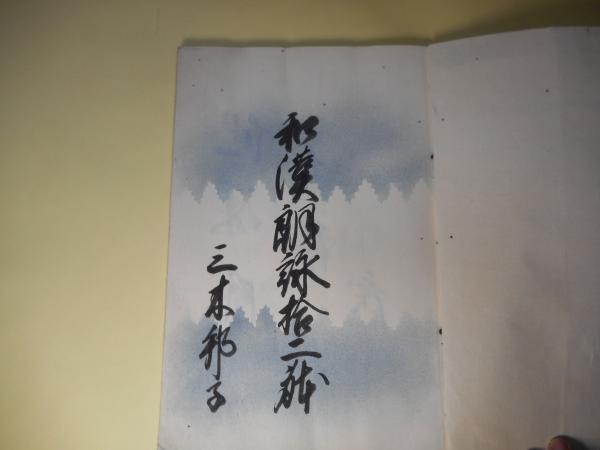 和漢朗詠拾二張
三木邦子